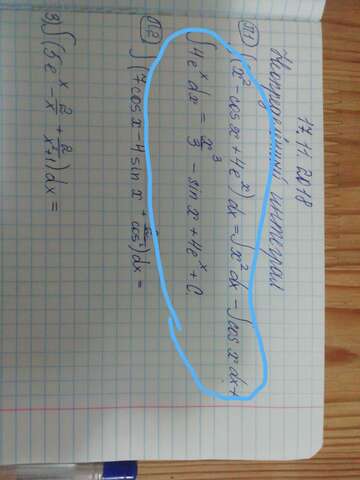 17.11.2018
Неопределённый интеграл
№1. ∫(x² - cos x + 4eˣ)dx = ∫x² dx - ∫cos x dx +
∫4eˣ dx = x³/3 - sin x + 4eˣ + C.
№2. ∫(7cos x - 4 sin x + 2/cos²x)dx =
3) ∫(5eˣ - 2/x + 2/(x²+1))dx =